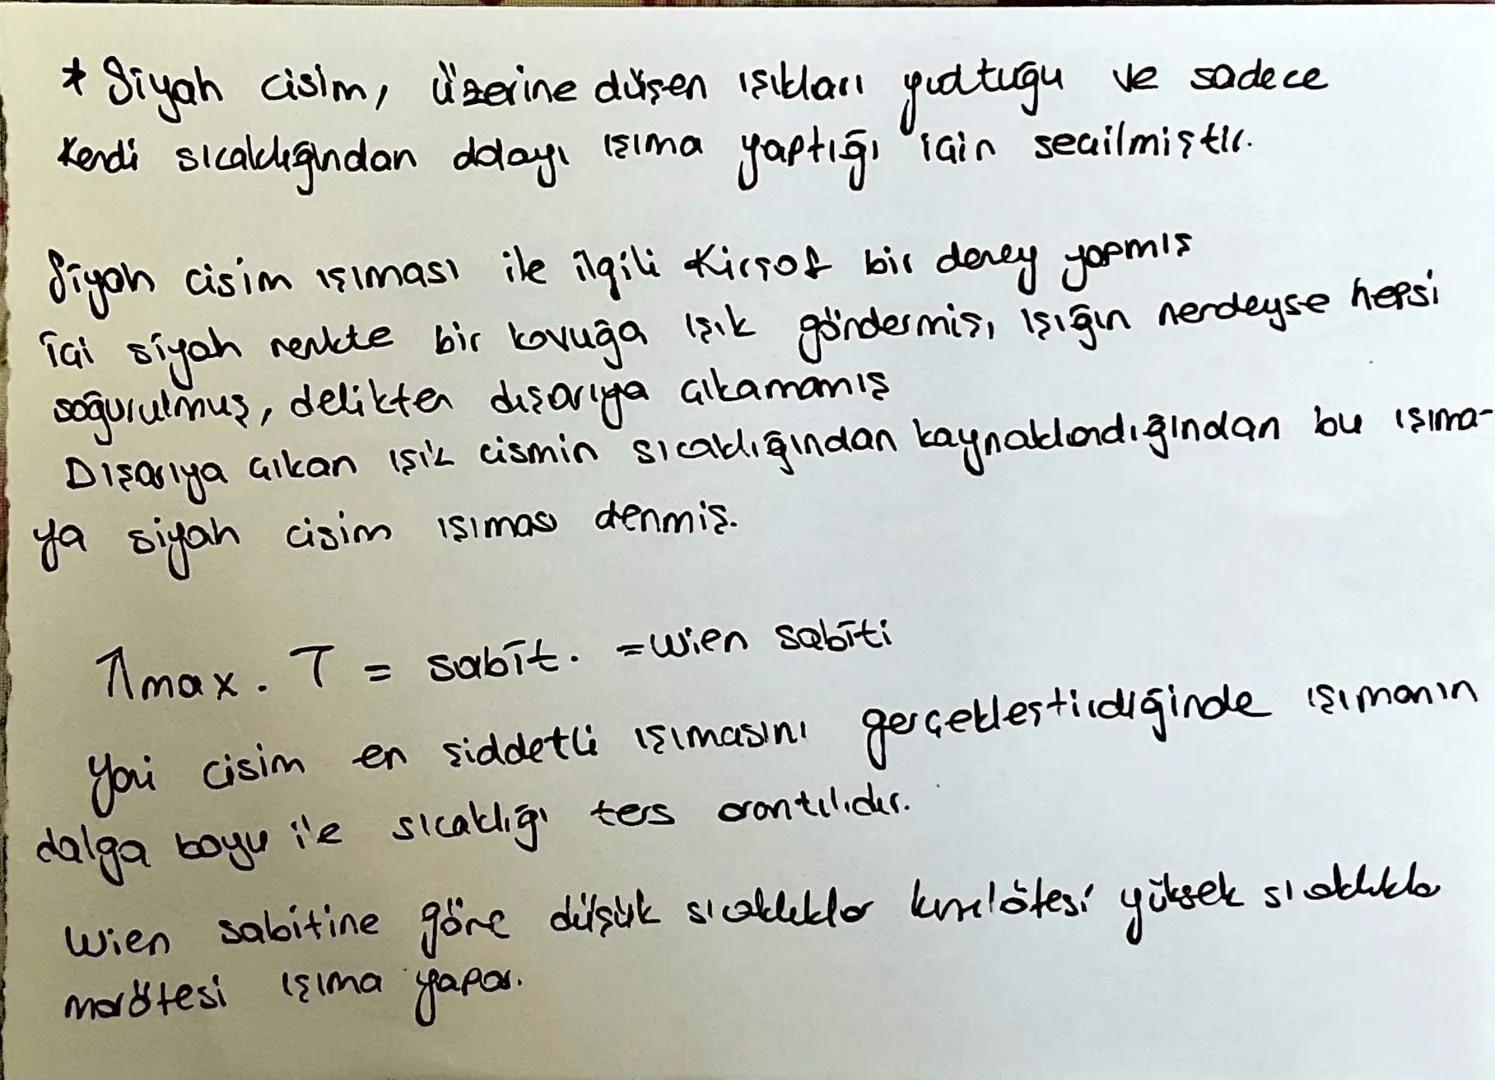 * Siyah cisim, üzerine düşen ışıkları yuttuğu ve sadece
Kendi sıcaklığından dolayı ışıma yaptığı için seçilmiştir.
Siyah cisim ışıması ile ilgili Kirşof bir deney yapmış
içi siyah renkte bir kovuğa ışık göndermiş, ışığın nerdeyse hepsi
soğurulmuş, delikten dışarıya çıkamamış
Dışarıya çıkan ışık cismin sıcaklığından kaynaklandığından bu ışıma-
ya siyah cisim ışıması denmiş.
λmax. T = sabit. = Wien sabiti
Yani cisim en şiddetli ışımasını gerçekleştirdiğinde ışımanın
dalga boyu ile sıcaklığı ters orantılıdır.
Wien sabitine göre düşük sıcaklıklar kızılötesi yüksek sıcaklıkla
morötesi ışıma yapar.